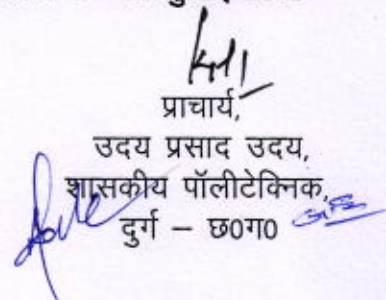 प्राचार्य,
उदय प्रसाद उदय,
शासकीय पॉलीटेक्निक,
दुर्ग – छ0ग0